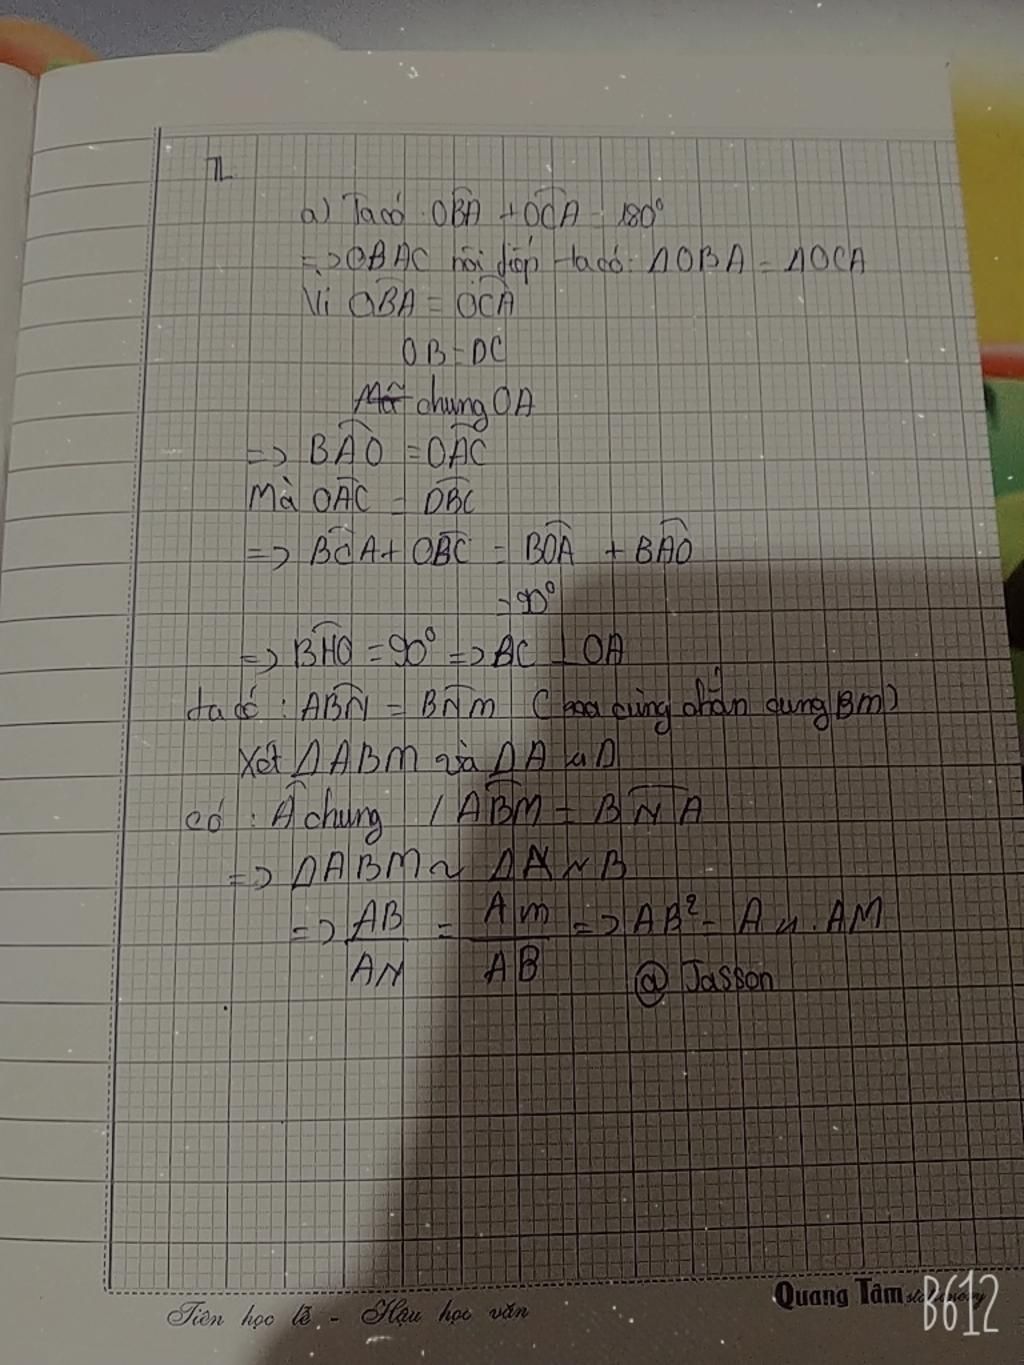 a) Ta có OBA + OCA = 180°
=> OBAC nội tiếp ta có: ΔOBA = ΔOCA
Vì OBA = OCA
OB = OC
chung OA
=> BAO = OAC
Mà OAC = OBC
=> BCA + OBC = BOA + BAO
= 90°
=> BHO = 90° => BC ⊥ OA
ta có: ABN = BNM ( cùng chắn cung BM)
Xét ΔABM và ΔA
có: A chung / ABM = BNA
=> ΔABM ~ ΔANB
=> AB/AN = AM/AB => AB² = AN.AM
@ Jasson
Tiên học lễ - Hậu học văn
Quang Tâm stationery
B612